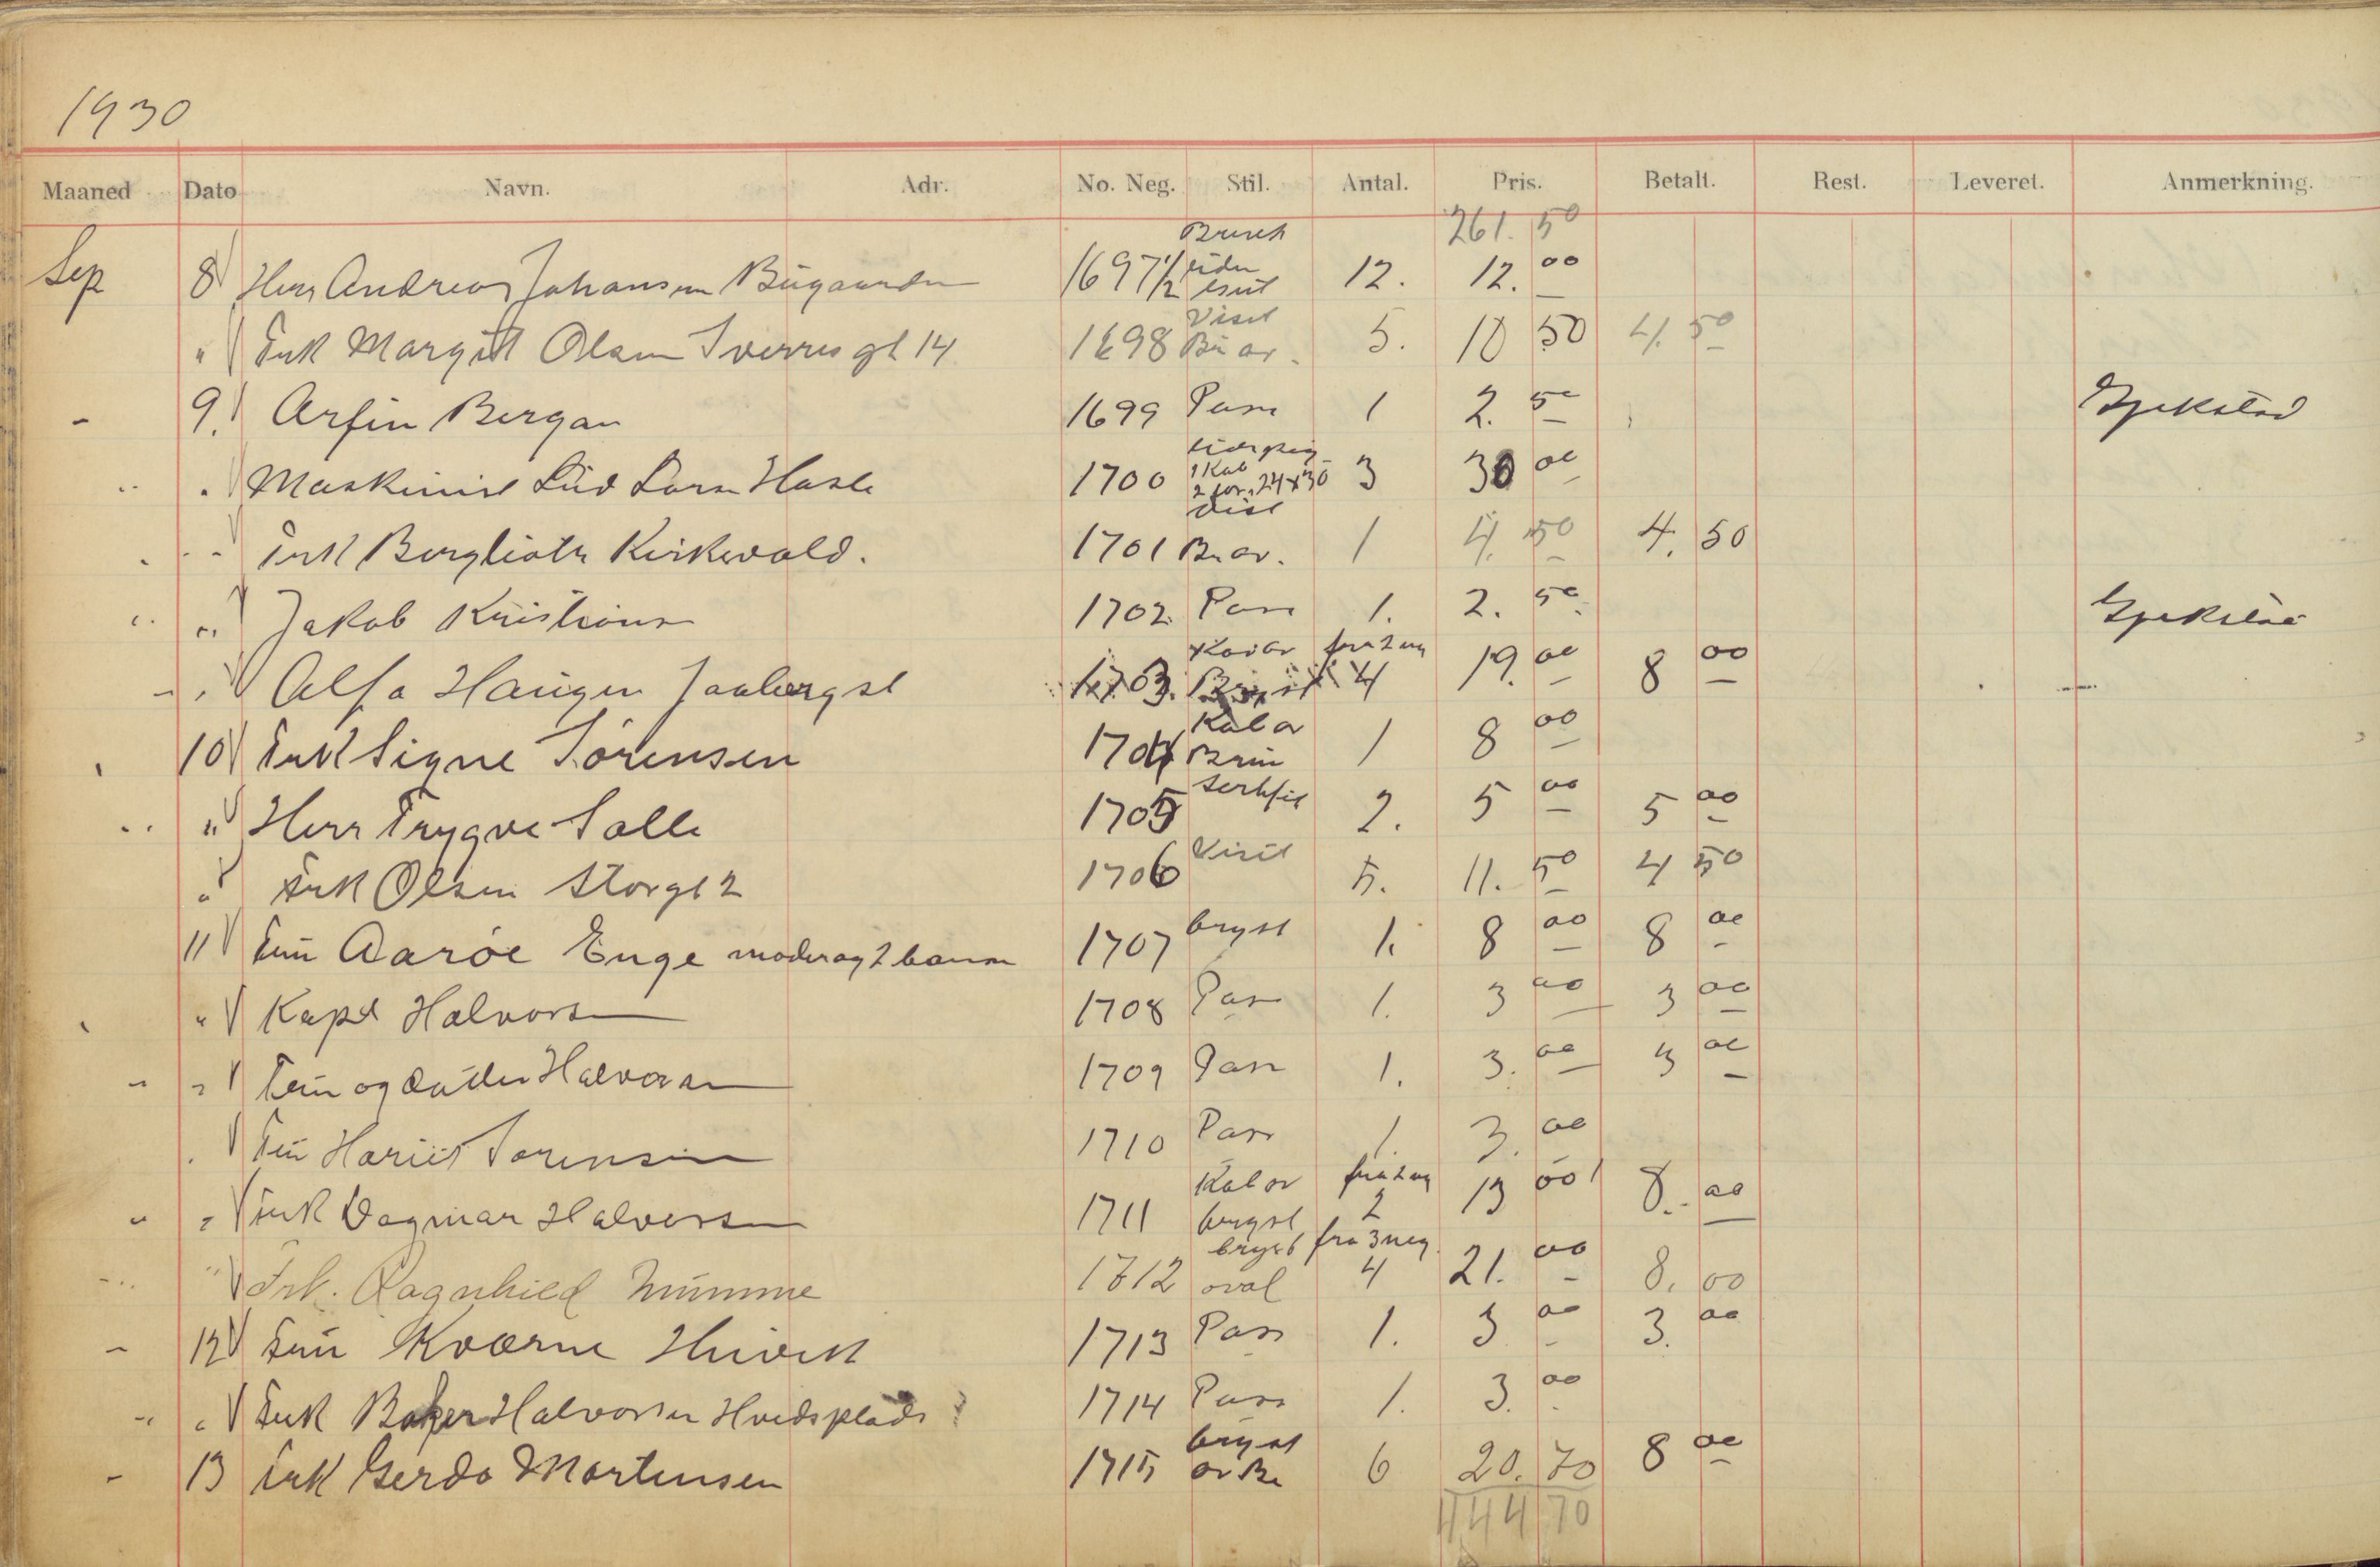 1930
Maaned Dato Navn. Adr. No. Neg. Stil. Antal. Pris. Betalt. Rest. Leveret. Anmerkning.
261. 50
Sep 8 Herr Andreas Johansen 1697 1/2 12. 12. 00
" Frk Margit Olsen Sverresgt 14 1698 Visit 5. 10 50 4. 50
9. Arfin Bergan 1699 Pass 1 2. 50
" Maskinist Lars Hasle 1700 1 Kab 2 for. 24x30 3 30 00
" Frk Berglioth Kirkevold. 1701 Visit Br. ov. 1 4. 50 4. 50
" Jakob Kristians 1702. Pass 1. 2. 50
" Alfa Haugen 1703. Bryst fra 2 neg 4 19. 00 8 00
10 Frk Signe Sørensen 1704 Kab ov 1 8 00
" Herr Trygve Salle 1705 2. 5 00 5 00
" Frk Olsen Storgt 2 1706 Visit 5. 11. 50 4 50
11 Fru Aarøe Enge moder og 2 barn 1707 bryst 1. 8 00 8 00
" Kapt Halvorsen 1708 Pass 1. 3 00 3 00
" Fru og datter Halvorsen 1709 Pass 1. 3. 00 3 00
" Fru Sørensen 1710 Pass 1. 3. 00
" Frk Dagmar Halvorsen 1711 Kab ov bryst fra 2 neg 2 13 00 8. 00
" Frk. Ragnhild Mumme 1712 bryst oval fra 3 neg. 4 21. 00 8. 00
12 Fru Kværne 1713 Pass 1. 3 00 3. 00
" Frk Halvorsen Hvidsplads 1714 Pass 1. 3. 00
13 Frk Gerda Mortensen 1715 bryst 6 20. 70 8 00
444 70